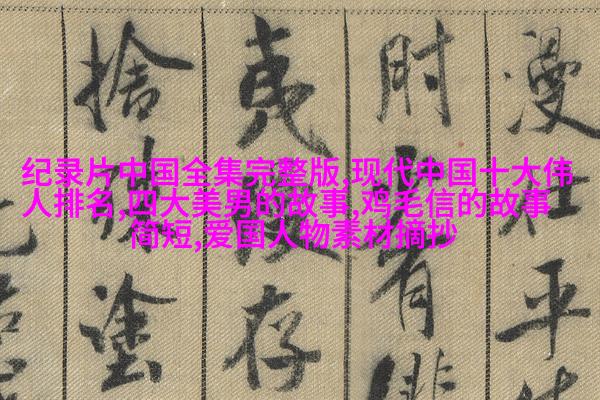 纪录片中国全集完整版,现代中国十大伟
人排名,四大美男的故事,鸡毛信的故事
简短,爱国人物素材摘抄
漫仕平
时有
夷 存
捨 塗